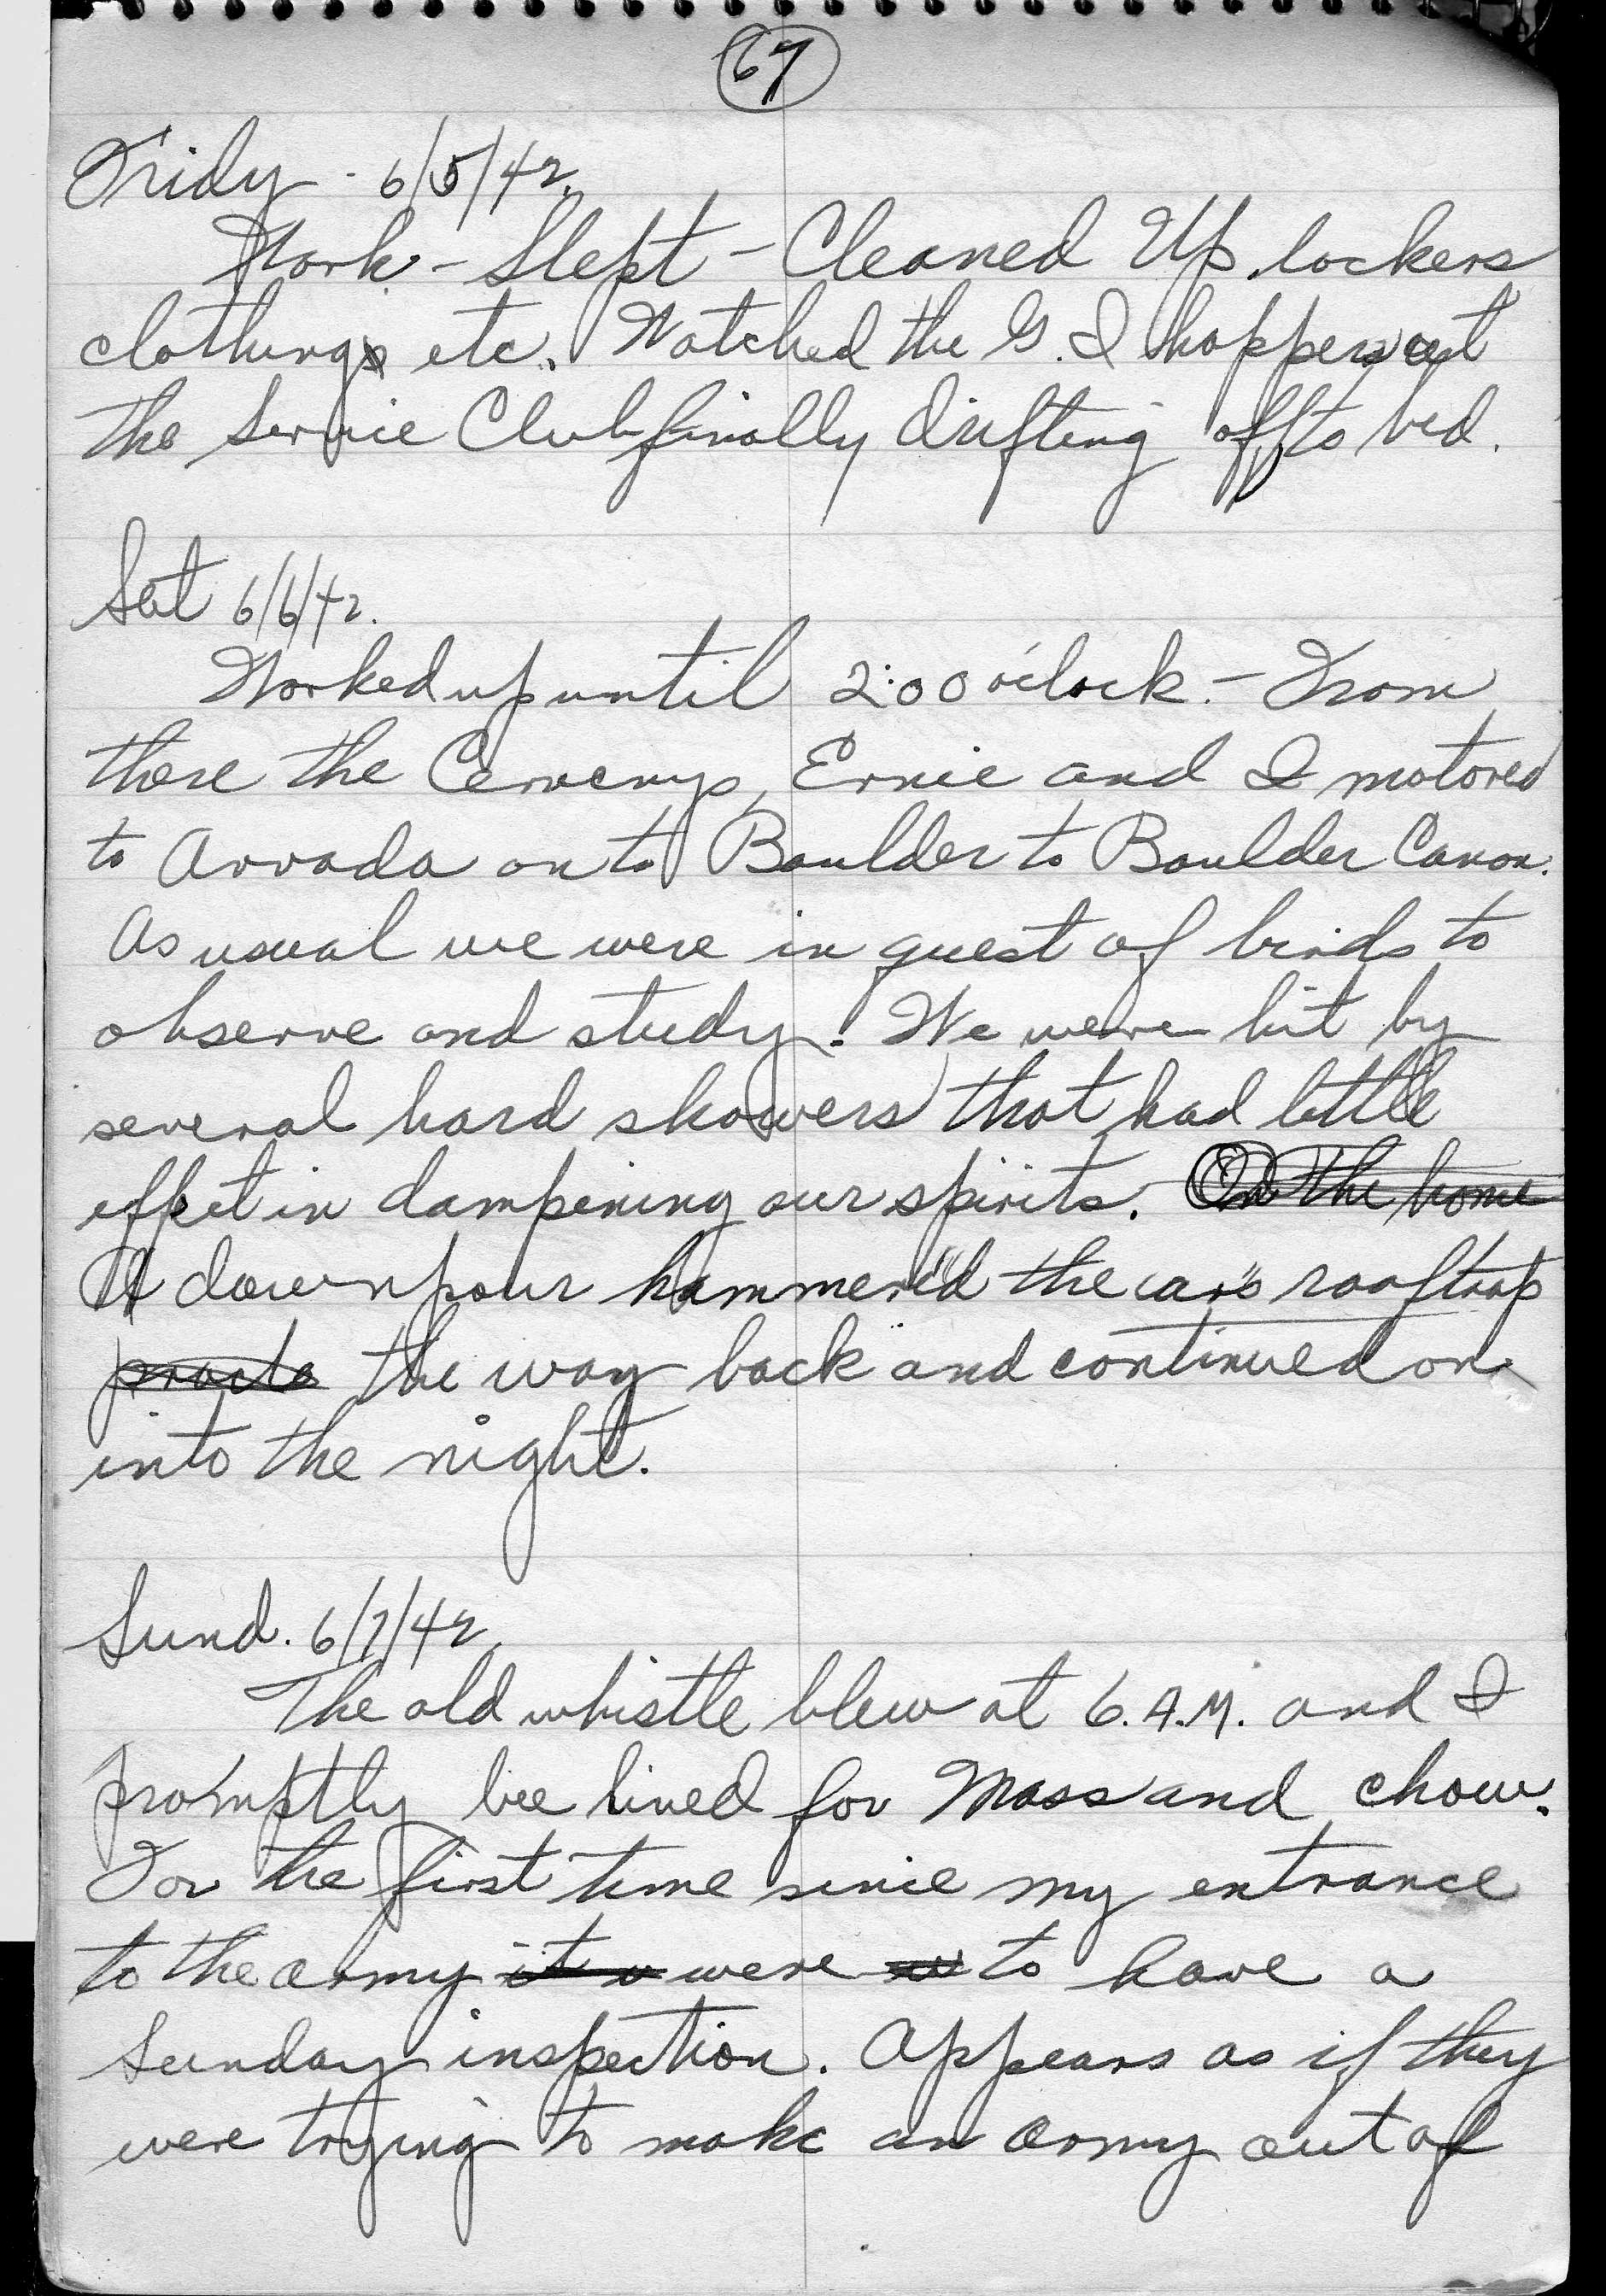 67
Fridy - 6/5/42.
Work - Slept - Cleaned Up lockers
clothings etc. Watched the G.I hoppers at
the Service Club finally drifting off to bed.
Sat 6/6/42.
Worked up until 2:00 o'clock. - From
there the Cervenys, Ernie and I motored
to Arvada on to Boulder to Boulder Canon.
As usual we were in quest of birds to
observe and study. We were hit by
several hard showers that had little
effect in dampening our spirits. On the home
A downpour hammer'd the car's rooftop
the way back and continued on
into the night.
Sund. 6/7/42.
The old whistle blew at 6. A.M. and I
promptly bee lined for Mass and chow.
For the first time since my entrance
to the army it were to have a
Sunday inspection. Appears as if they
were trying to make an army out of